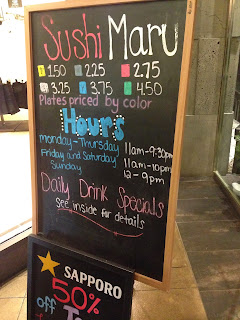 Sushi Maru
1.50 2.25 2.75
3.25 3.75 4.50
Plates priced by color
Hours
Monday-Thursday 11am-9:30pm
Friday and Saturday 11am-10pm
Sunday 12-9pm
Daily Drink Specials
see inside for details
SAPPORO
50%
off